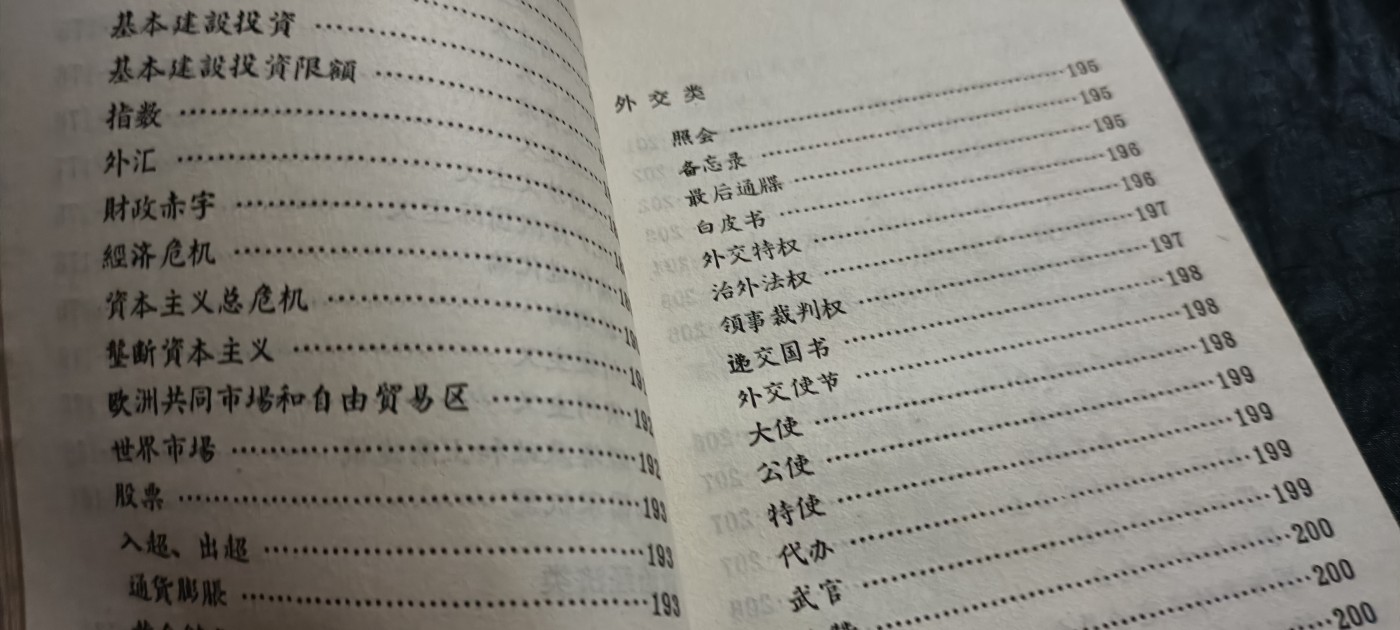 基本建設投資
基本建設投資限額
指数
外汇
財政赤字
經济危机
資本主义总危机
壟断資本主义 ………… 191
欧洲共同市場和自由貿易区 ………… 192
世界市場 ………… 192
股票 ………… 193
入超、出超 ………… 193
通貨膨脹 ………… 193
外交类
照会 ………… 195
备忘录 ………… 195
最后通牒 ………… 195
白皮书 ………… 196
外交特权 ………… 196
治外法权 ………… 197
領事裁判权 ………… 197
递交国书 ………… 198
外交使节 ………… 198
大使 ………… 198
公使 ………… 199
特使 ………… 199
代办 ………… 199
武官 ………… 199
200
200
200